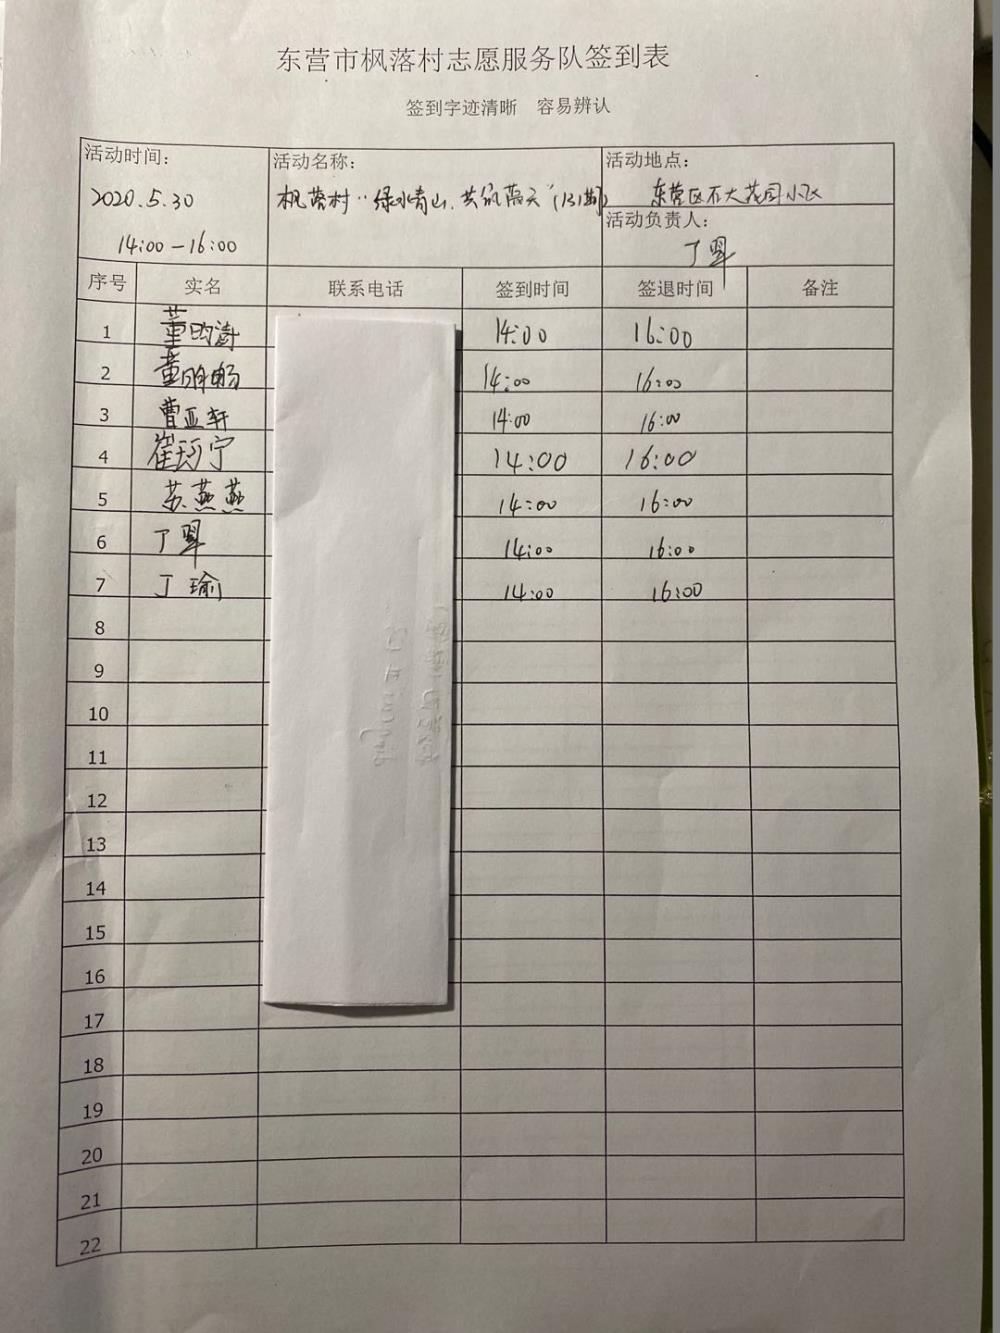 东营市枫落村志愿服务队签到表
签到字迹清晰 容易辨认
活动时间： 活动名称： 活动地点：
2020.5.30 枫落村“绿水青山.共筑蓝天”(131期) 东营区石大花园小区
14:00－16:00 活动负责人：
丁翠
序号 实名 联系电话 签到时间 签退时间 备注
1 董昀 14:00 16:00
2 董明畅 14:00 16:00
3 曹亚轩 14:00 16:00
4 崔珂宁 14:00 16:00
5 苏燕燕 14:00 16:00
6 丁翠 14:00 16:00
7 丁瑜 14:00 16:00
8
9
10
11
12
13
14
15
16
17
18
19
20
21
22